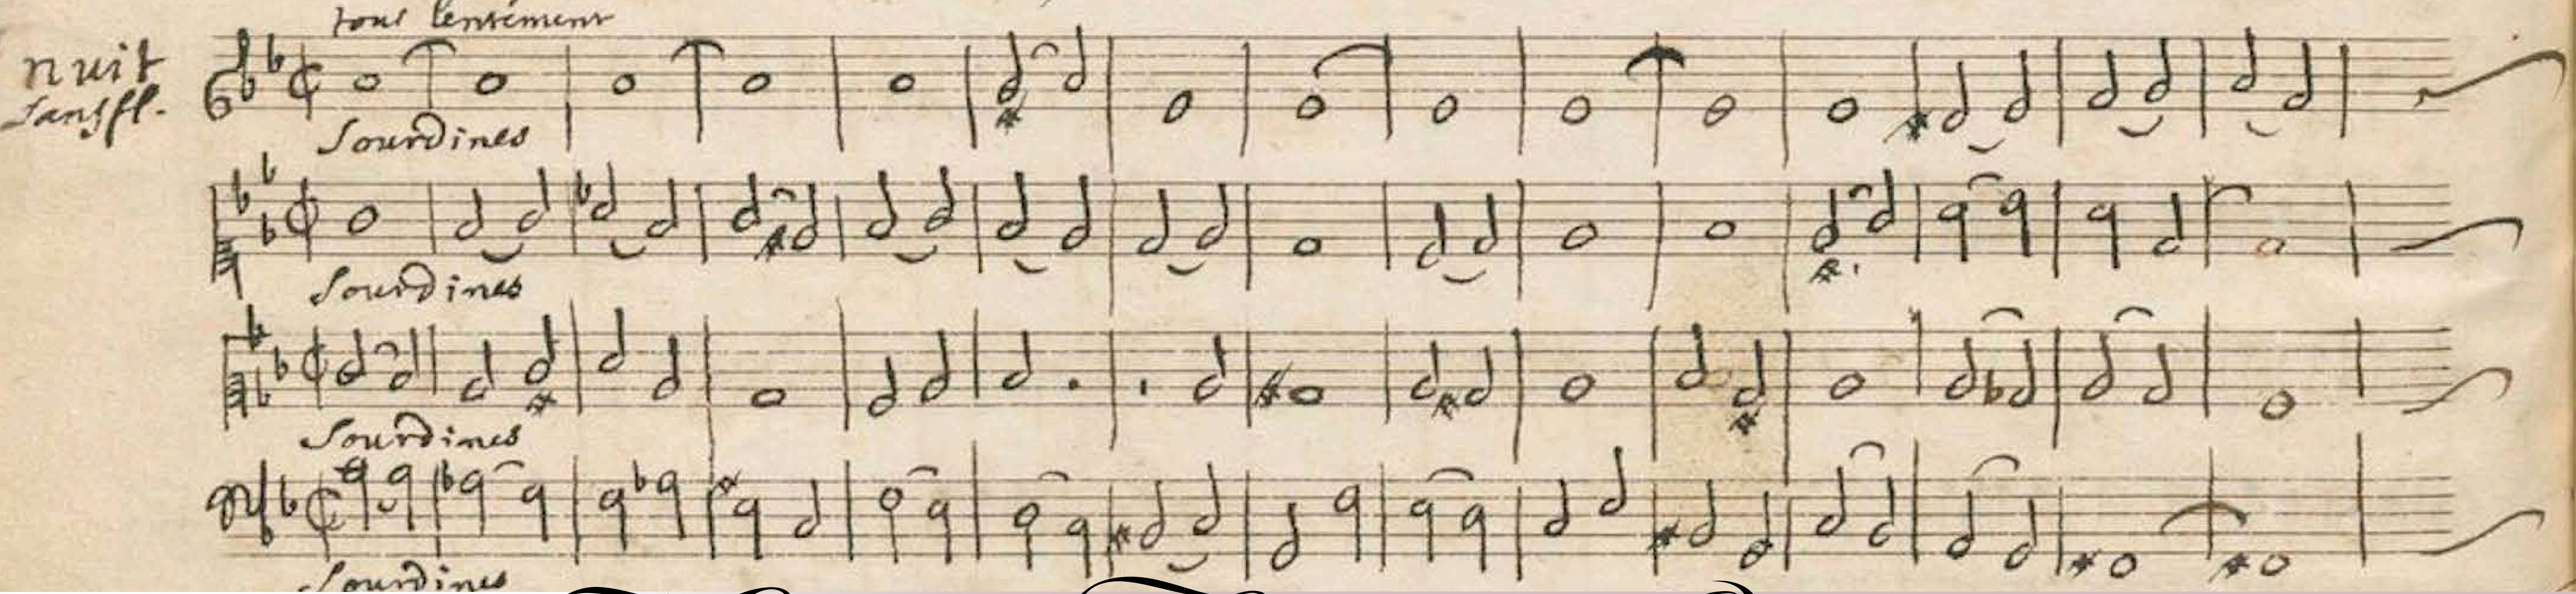 tous lentement
nuit
sansfl.
Sourdines
Sourdines
Sourdines
Sourdines